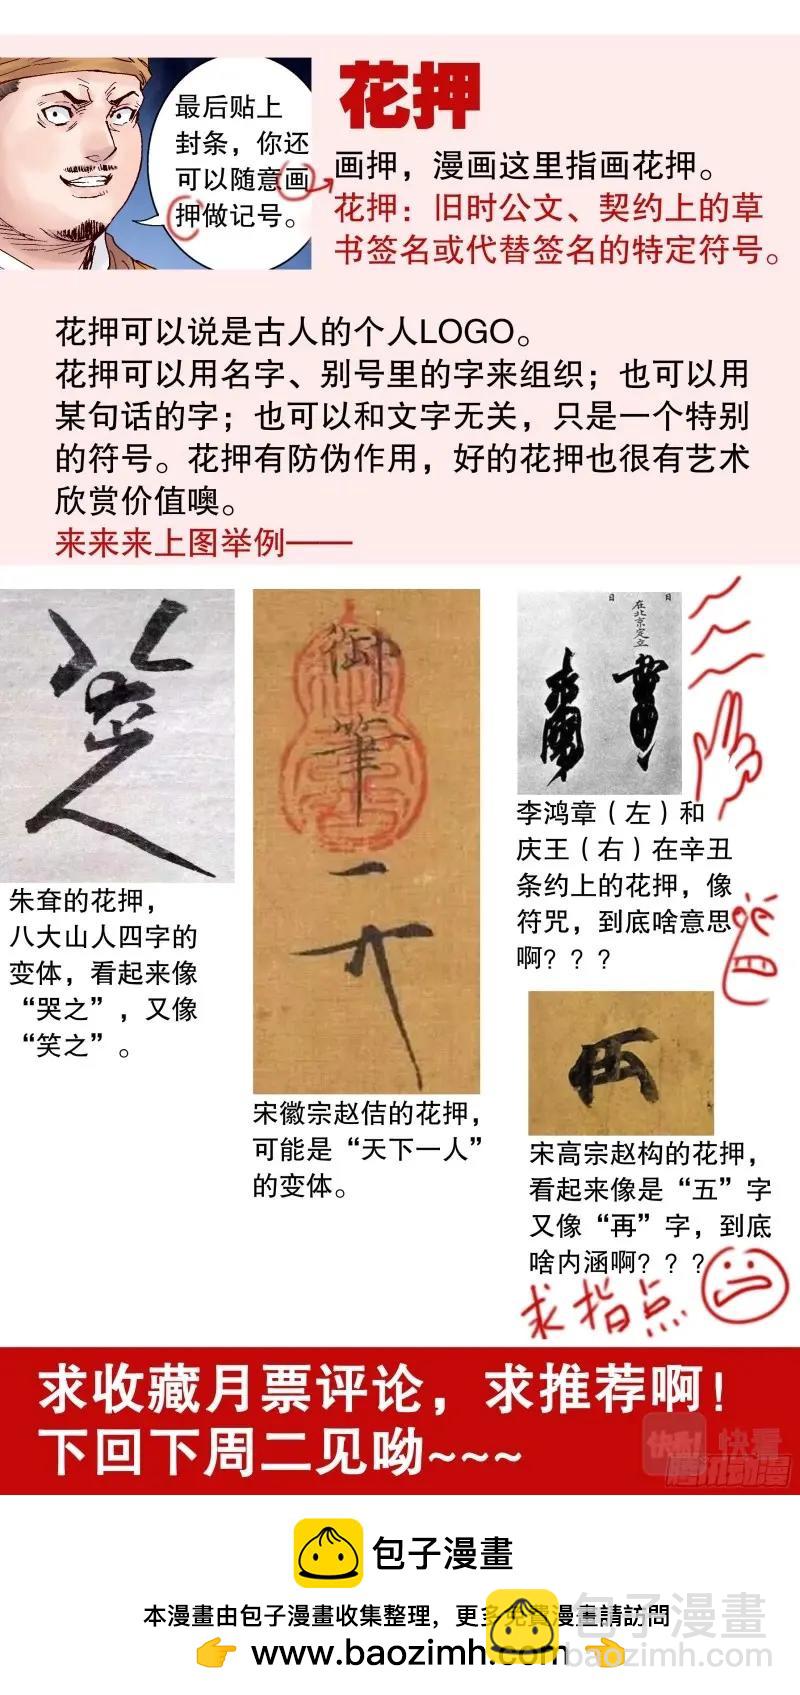 最后贴上
封条，你还
可以随意画
押做记号。
花押
画押，漫画这里指画花押。
花押：旧时公文、契约上的草
书签名或代替签名的特定符号。
花押可以说是古人的个人LOGO。
花押可以用名字、别号里的字来组织；也可以用
某句话的字；也可以和文字无关，只是一个特别
的符号。花押有防伪作用，好的花押也很有艺术
欣赏价值噢。
来来来上图举例——
御筆
在北京定立
朱耷的花押，
八大山人四字的
变体，看起来像
“哭之”，又像
“笑之”。
宋徽宗赵佶的花押，
可能是“天下一人”
的变体。
李鸿章（左）和
庆王（右）在辛丑
条约上的花押，像
符咒，到底啥意思
啊？？？
宋高宗赵构的花押，
看起来像是“五”字
又像“再”字，到底
啥内涵啊？？？
求指点
求收藏月票评论，求推荐啊！
下回下周二见呦~~~
快看!
快看
腾讯动漫
包子漫畫
本漫畫由包子漫畫收集整理，更多免費漫畫請訪問
www.baozimh.com
包子漫畫
baozimh.com